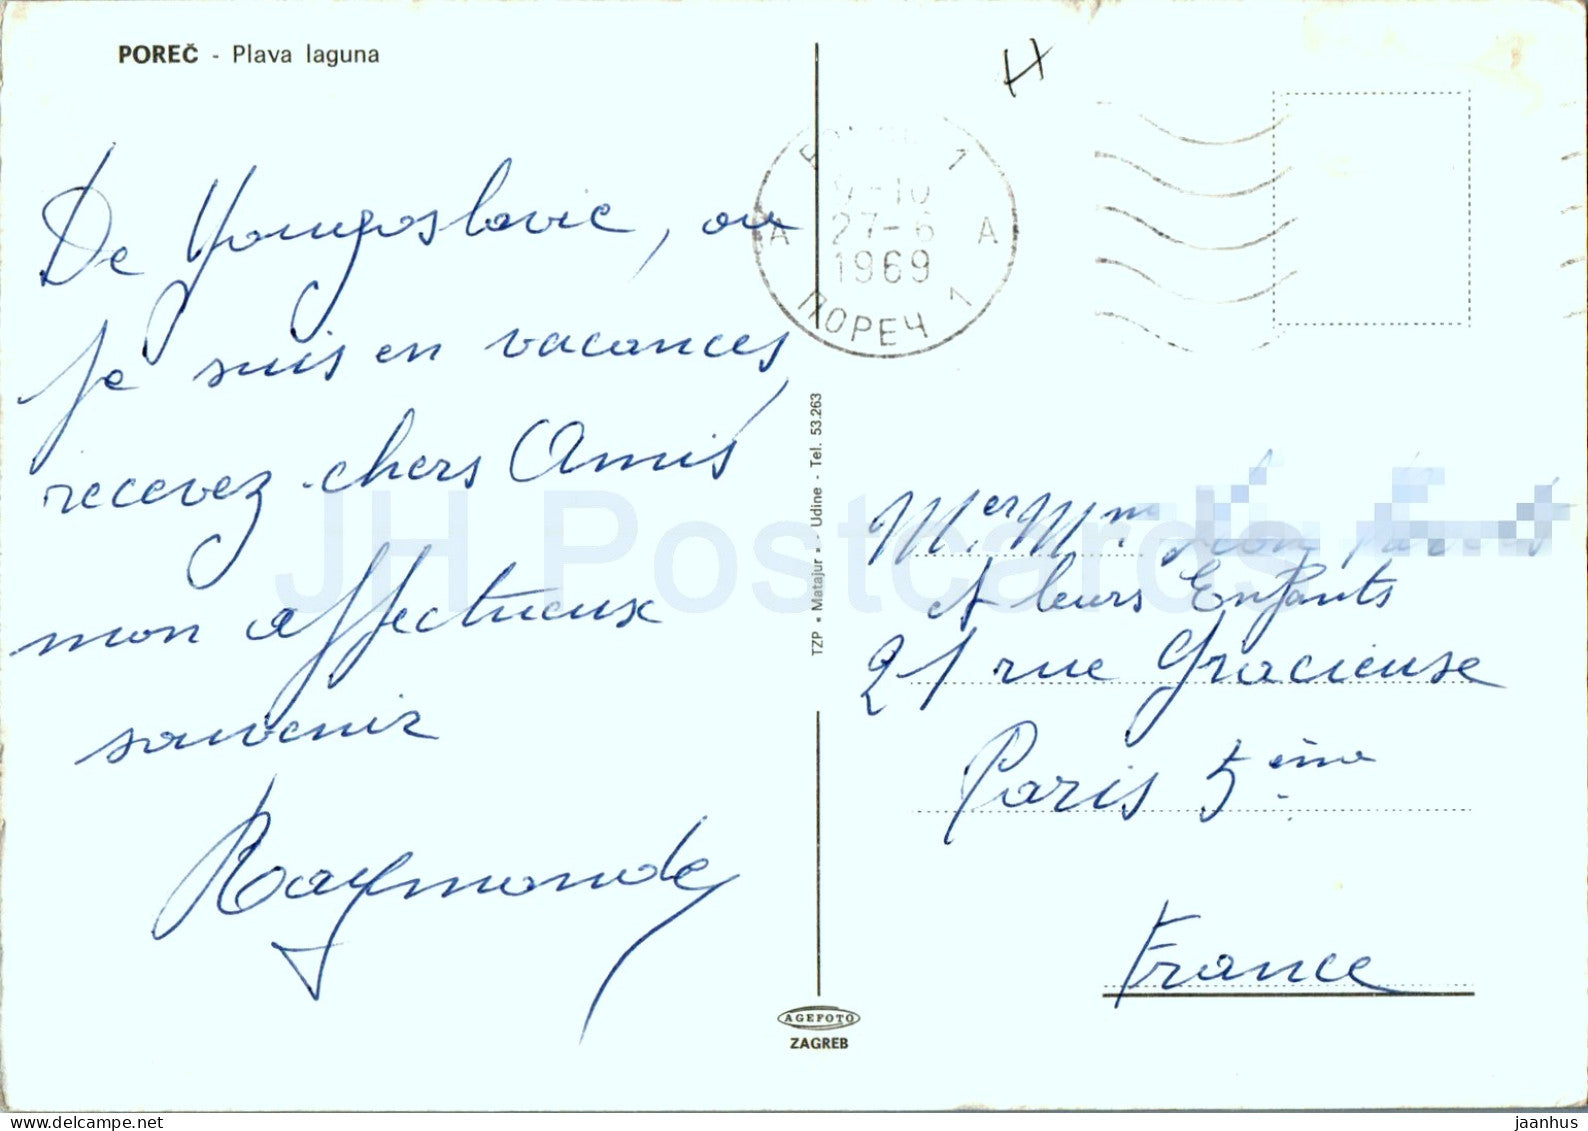 POREČ - Plava laguna
De Yougoslavie, ou
je suis en vacances,
recevez chers Amis
mon affectueux
souvenir
Raymonde
H
1
9-10
A 27-6 A
1969
ПОРЕЧ 1
TZP « Matajur » - Udine - Tel. 53.263
AGEFOTO
ZAGREB
Mer Mme
et leurs Enfants
21 rue Gracieuse
Paris 5ème
France
JH Postcards
delcampe.net
jaanhus